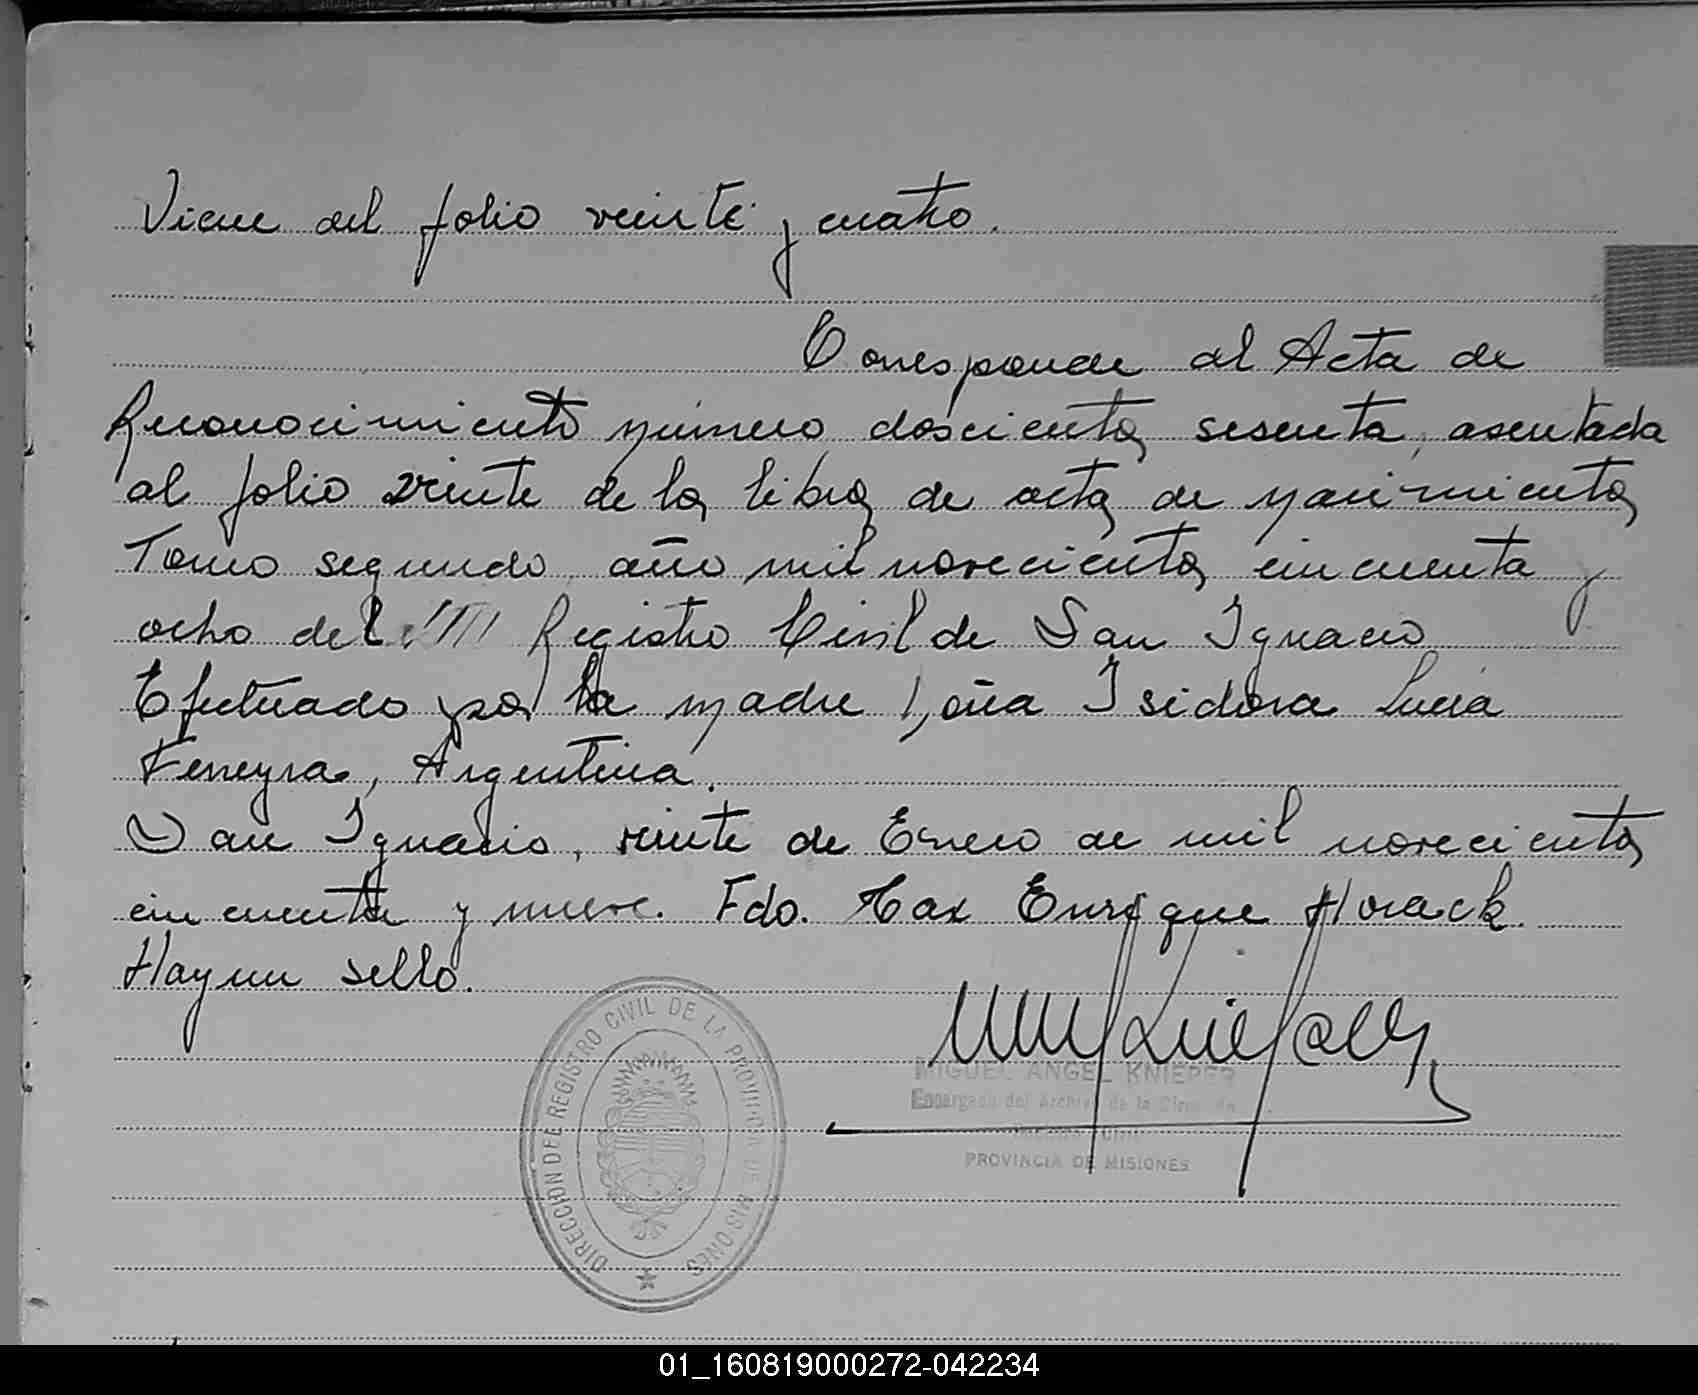 Viene del folio veinte y cuatro.
Corresponde al Acta de
Reconocimiento número doscientos sesenta, asentada
al folio veinte de los libros de actas de nacimientos
Tomo segundo, año mil novecientos cincuenta y
ocho del Registro Civil de San Ignacio
Efectuado por la madre Doña Isidora Lucia
Ferreyra, Argentina.
San Ignacio, veinte de Enero de mil novecientos
cincuenta y nueve. Fdo. Max Enrique Horack.
Hay un sello.
DIRECCIÓN DE REGISTRO CIVIL DE LA PROVINCIA DE MISIONES
MIGUEL ANGEL KNIEPER
Encargado del Archivo de la Direc. de
Registro Civil
PROVINCIA DE MISIONES
01_160819000272-042234